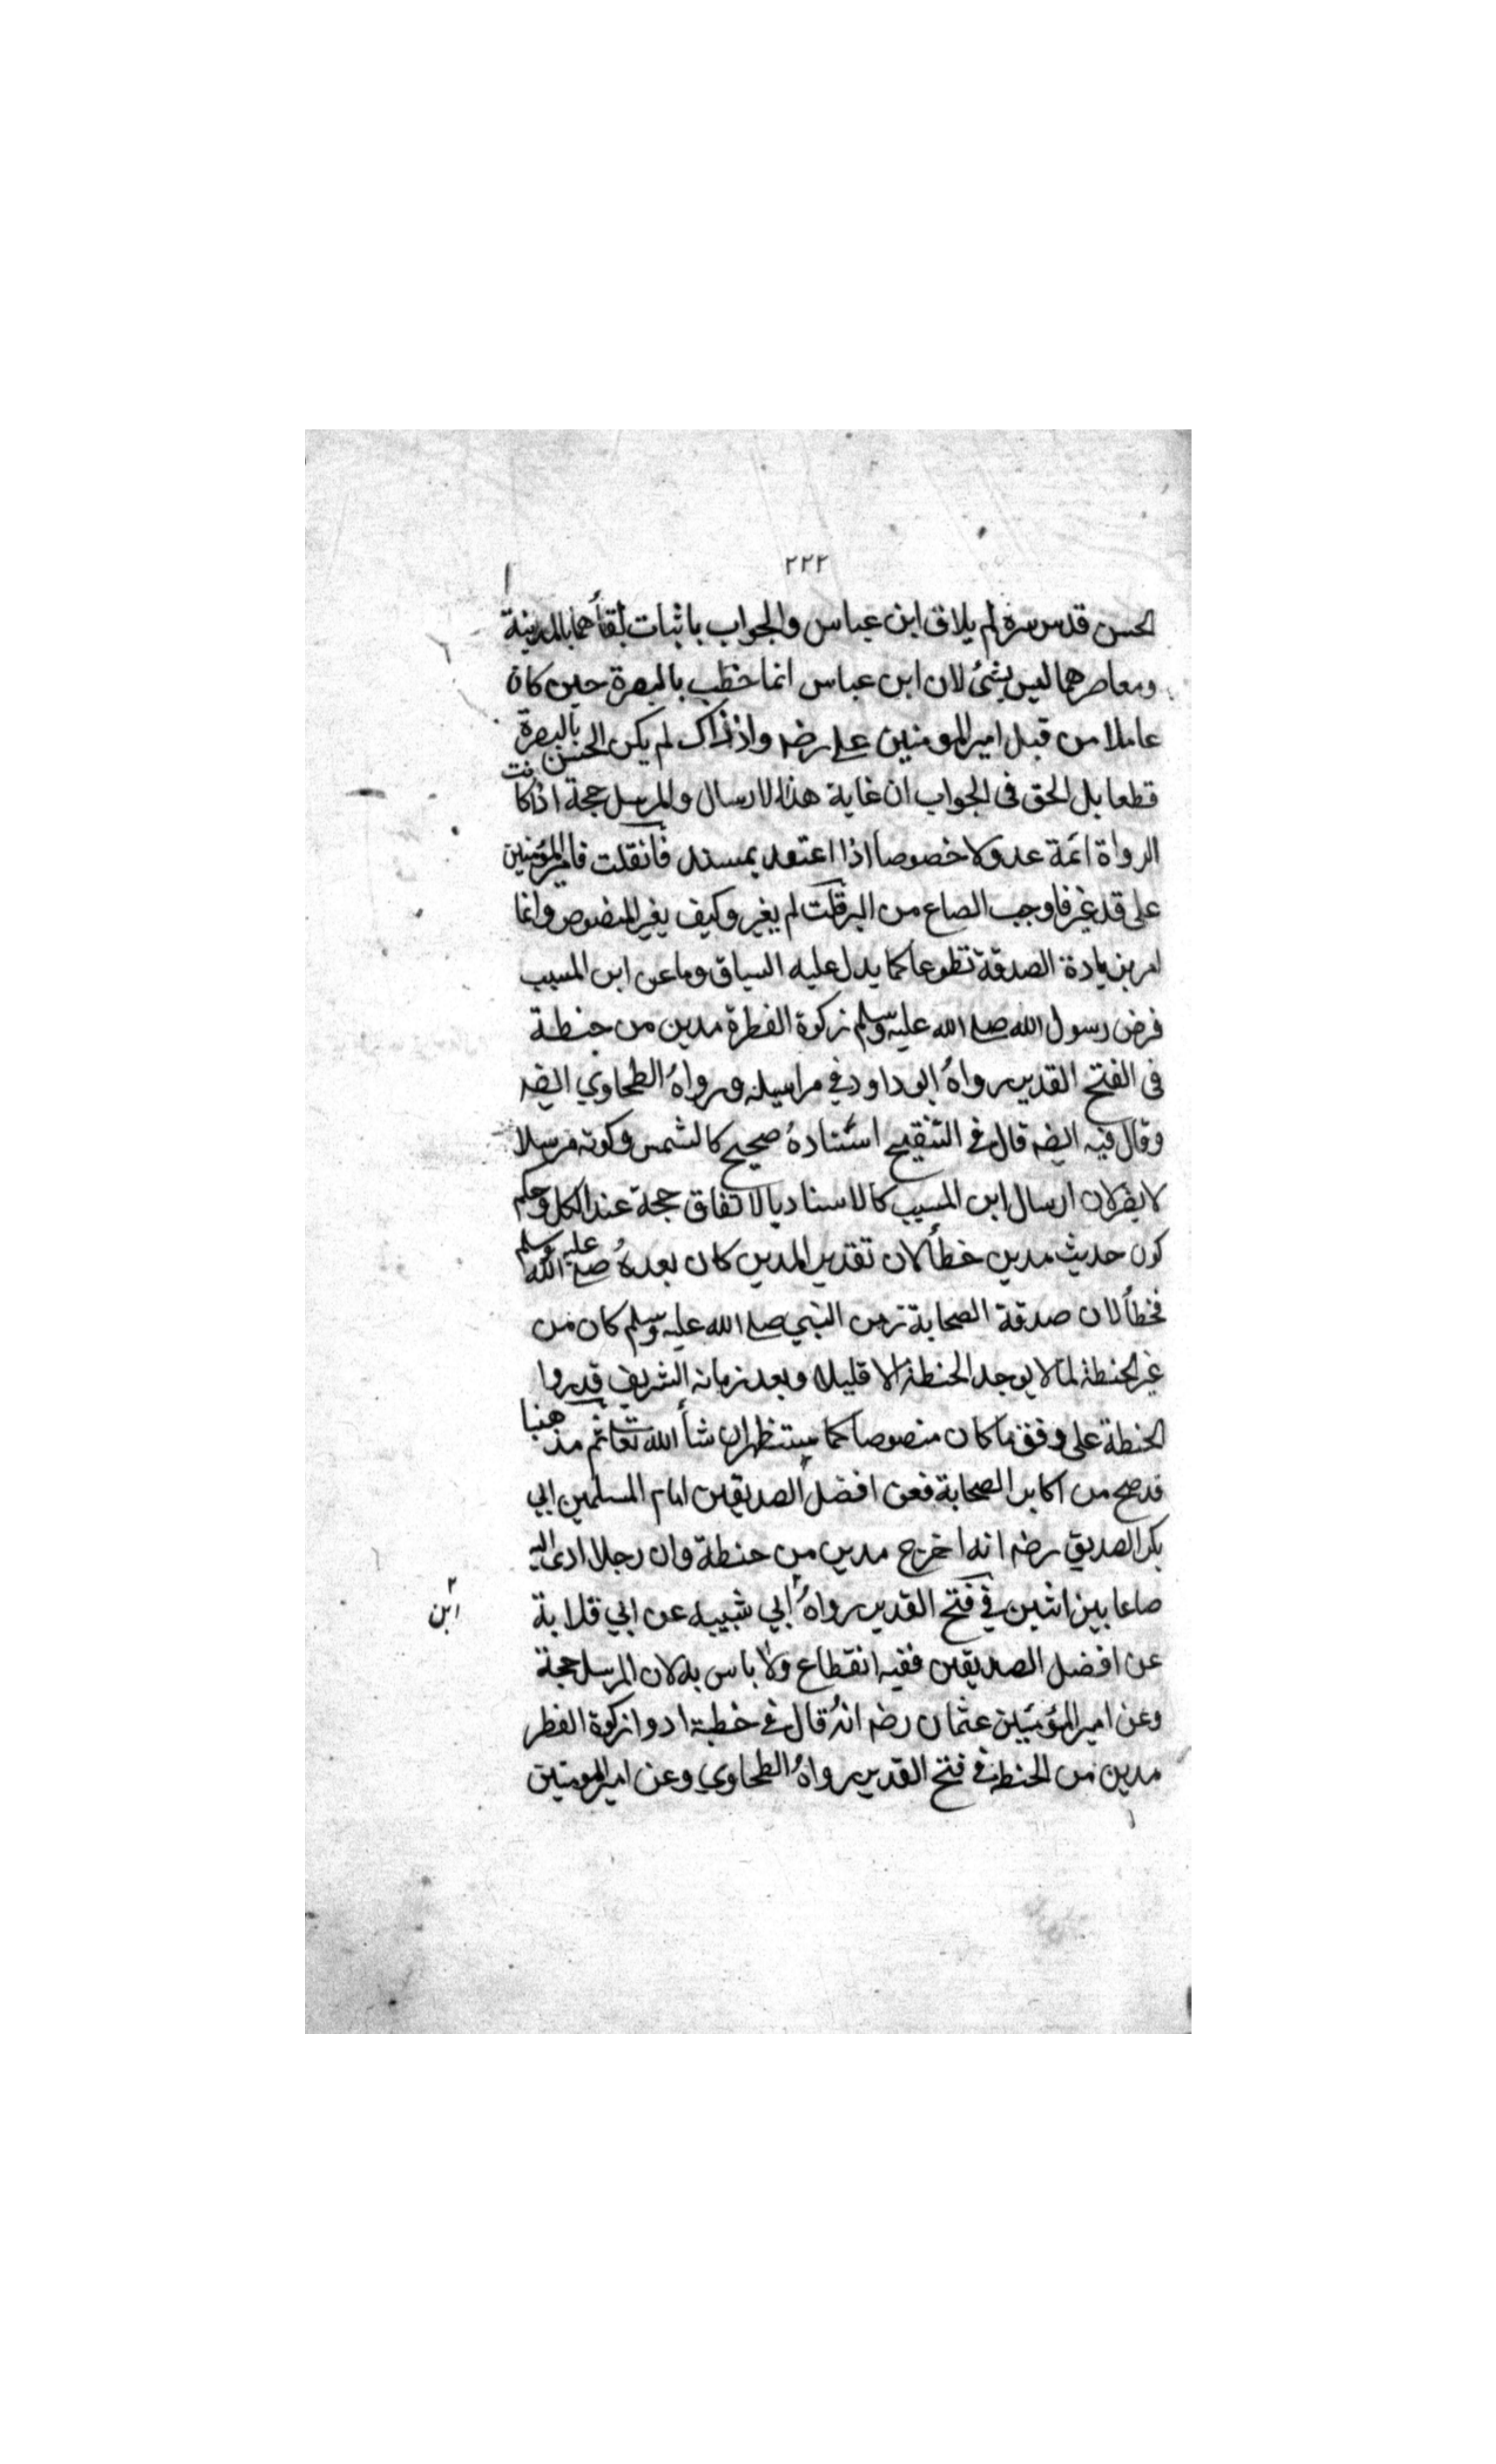 ٢٢٢
الحسن قدس سره لم يلاق ابن عباس والجواب باثبات لقأهما بالمدينة
ومعاصرهما ليس بشئ لان ابن عباس انما خطب بالبصرة حين كان
عاملا من قبل امير المومنين على رضه واذ ذاك لم يكن الحسن بالبصرة
قطعا بل الحق فى الجواب ان غاية هذا الارسال والمرسل حجة اذا كانت
الرواة ائمة عدولا خصوصا اذا اعتمد بمسند فان قلت فامير المؤمنين
على قد غير فاوجب الصاع من البر قلت لم يغير وكيف يغير المنصوص وانما
امر بزيادة الصدقة تطوعا كما يدل عليه السياق وما عن ابن المسيب
فرض رسول الله صلى الله عليه وسلم زكوة الفطرة مدين من حنطة
فى الفتح القدير رواهُ ابو داود في مراسيله ورواهُ الطحاوي ايضه
وقال فيه ايضه قال في التنقيح اسناده صحيح كالشمس وكونه مرسلا
لا يضر لان ارسال ابن المسيب كالاسناد بالاتفاق حجة عند الكل وحكم
كون حديث مدين خطأ لان تقدير المدين كان بعدهُ صلى الله عليه وسلم
فخطأ لان صدقة الصحابة زمن النبي صلى الله عليه وسلم كان من
غير الحنطة لما لا يوجد الحنطة الا قليلا وبعد زمانه الشريف قدروا
الحنطة على وفق ما كان منصوصا كما ستظهر ان شأ الله تعا ثم مذهبنا
قد صح من اكابر الصحابة فعن افضل الصديقين امام المسلمين ابي
بكر الصديق رضه انه اخرج مدين من حنطة وان رجلا ادى اليه
صاعا بين اثنين في فتح القدير رواهُ ابي شيبه عن ابي قلابة
ابن
عن افضل الصديقين ففيه انقطاع ولا باس به لان المرسل حجة
وعن امير المؤمنين عثمان رضه انهُ قال في خطبة ادوا زكوة الفطر
مدين من الحنطة في فتح القدير رواهُ الطحاوي وعن امير المومنين